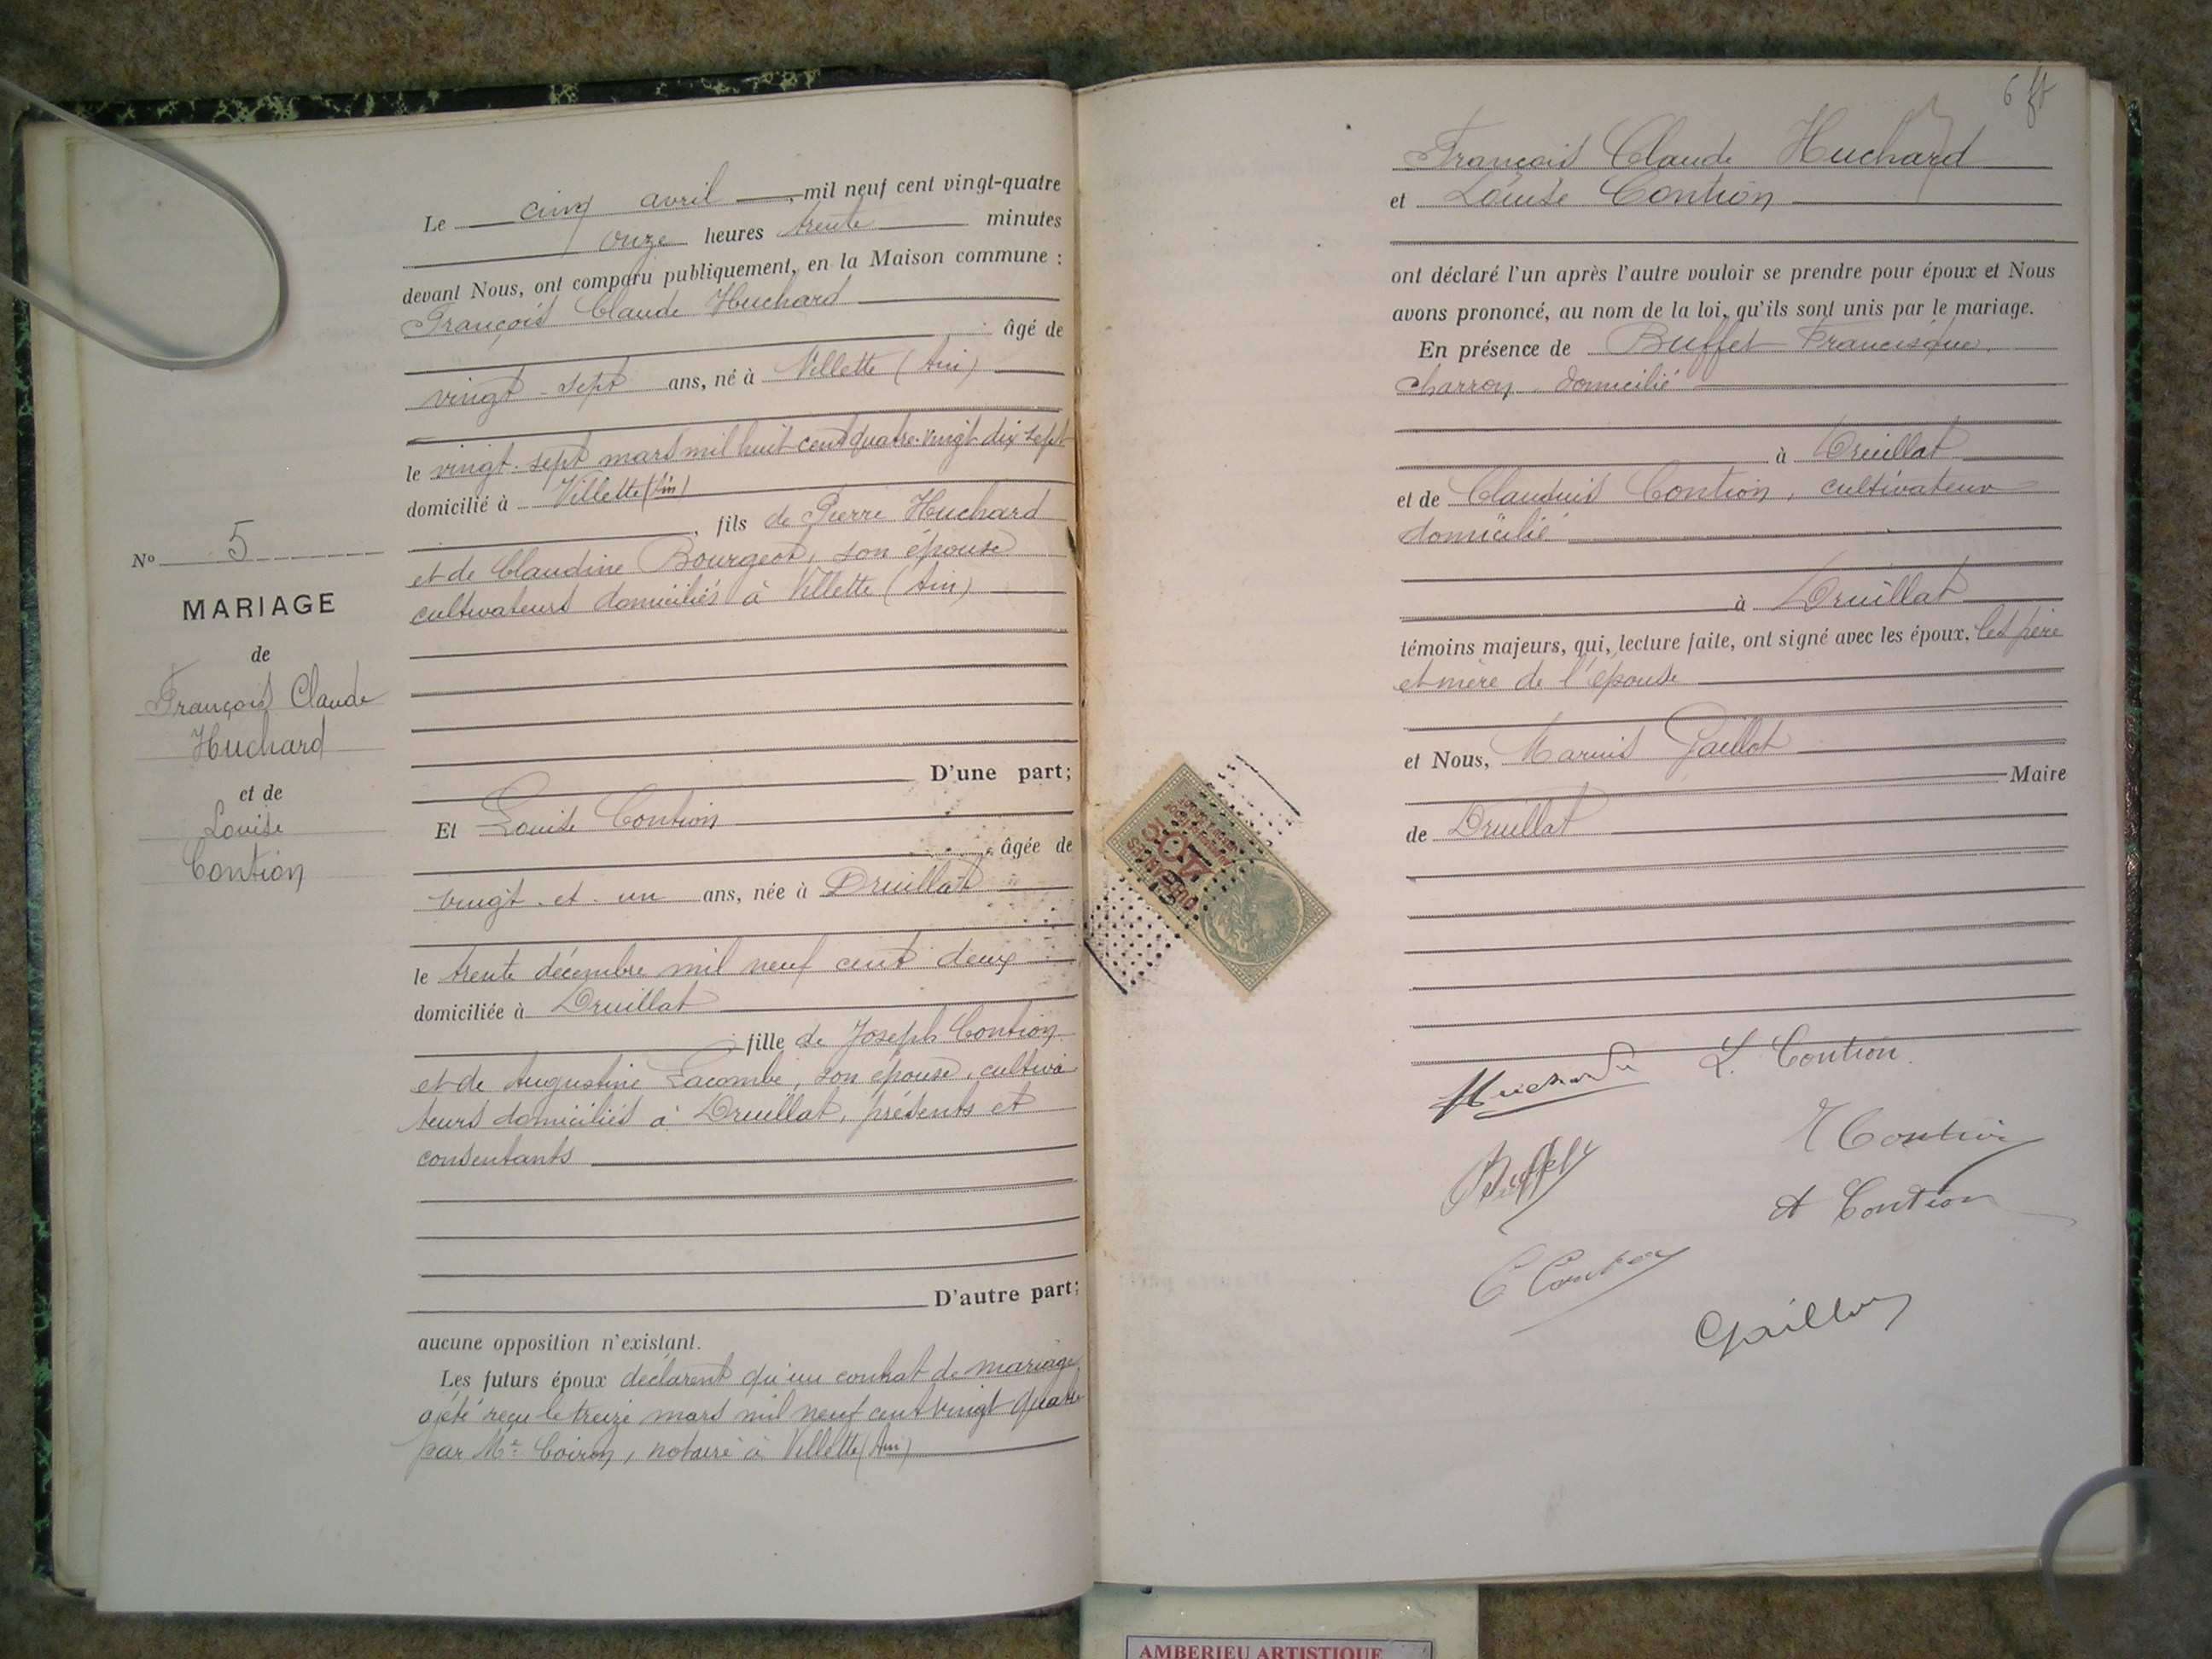 Le cinq avril mil neuf cent vingt-quatre
onze heures trente minutes
devant Nous, ont comparu publiquement, en la Maison commune :
François Claude Huchard
âgé de
vingt-sept ans, né à Villette (Ain)
le vingt-sept mars mil huit cent quatre-vingt dix sept
domicilié à Villette (Ain)
, fils de Pierre Huchard
et de Claudine Bourgeot, son épouse
cultivateurs domiciliés à Villette (Ain)
D'une part;
Et Louise Contion
, âgée de
vingt-et-un ans, née à Druillat
le trente décembre mil neuf cent deux
domiciliée à Druillat
fille de Joseph Contion
et de Augustine Lacombe, son épouse, cultiva
teurs domiciliés à Druillat, présents et
consentants
D'autre part;
aucune opposition n'existant.
Les futurs époux déclarent qu'un contrat de mariage
a été reçu le treize mars mil neuf cent vingt quatre
par Me Coiron, notaire à Villette (Ain)
No 5
MARIAGE
de
François Claude
Huchard
et de
Louise
Contion
6
François Claude Huchard
et Louise Contion
ont déclaré l'un après l'autre vouloir se prendre pour époux et Nous
avons prononcé, au nom de la loi, qu'ils sont unis par le mariage.
En présence de Buffet Francisque,
charron domicilié
à Druillat
et de Claudius Contion, cultivateur
domicilié
à Druillat
témoins majeurs, qui, lecture faite, ont signé avec les époux, les père
et mère de l'épouse
et Nous, Marius Gaillot
Maire
de Druillat
Huchard L. Contion
Buffet Contion
A Contion
C Contion
AMBERIEU ARTISTIQUE